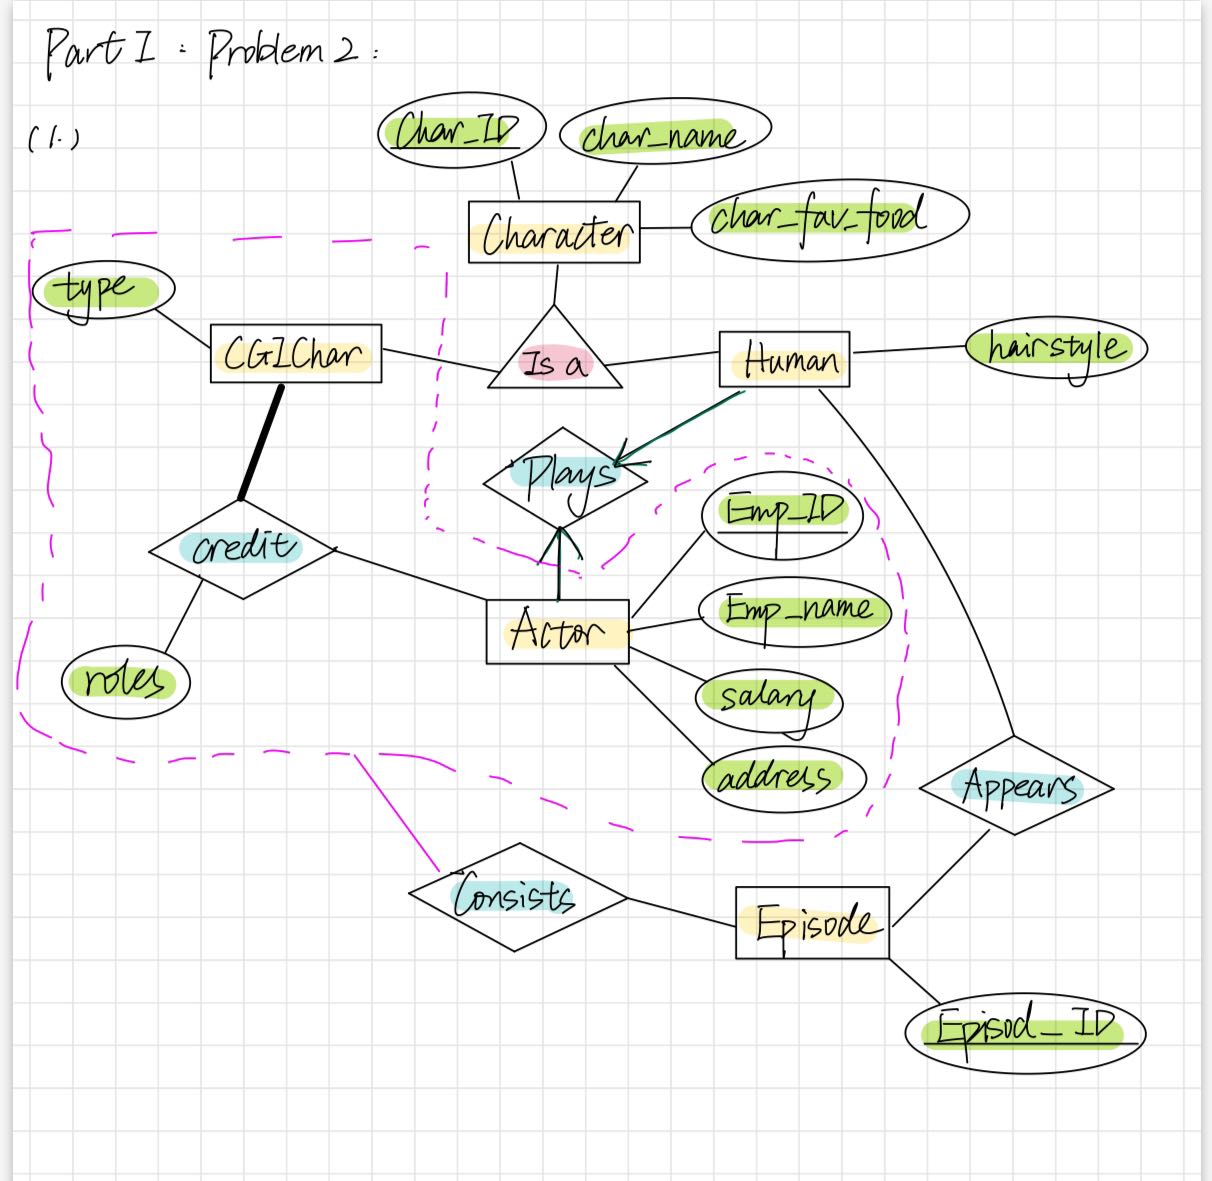 Part I : Problem 2 :
(1.)
Char_ID
char_name
char_fav_food
Character
type
CGIChar
Is a
Human
hairstyle
Plays
Emp_ID
credit
Emp_name
Actor
roles
salary
address
Appears
Consists
Episode
Episod_ID